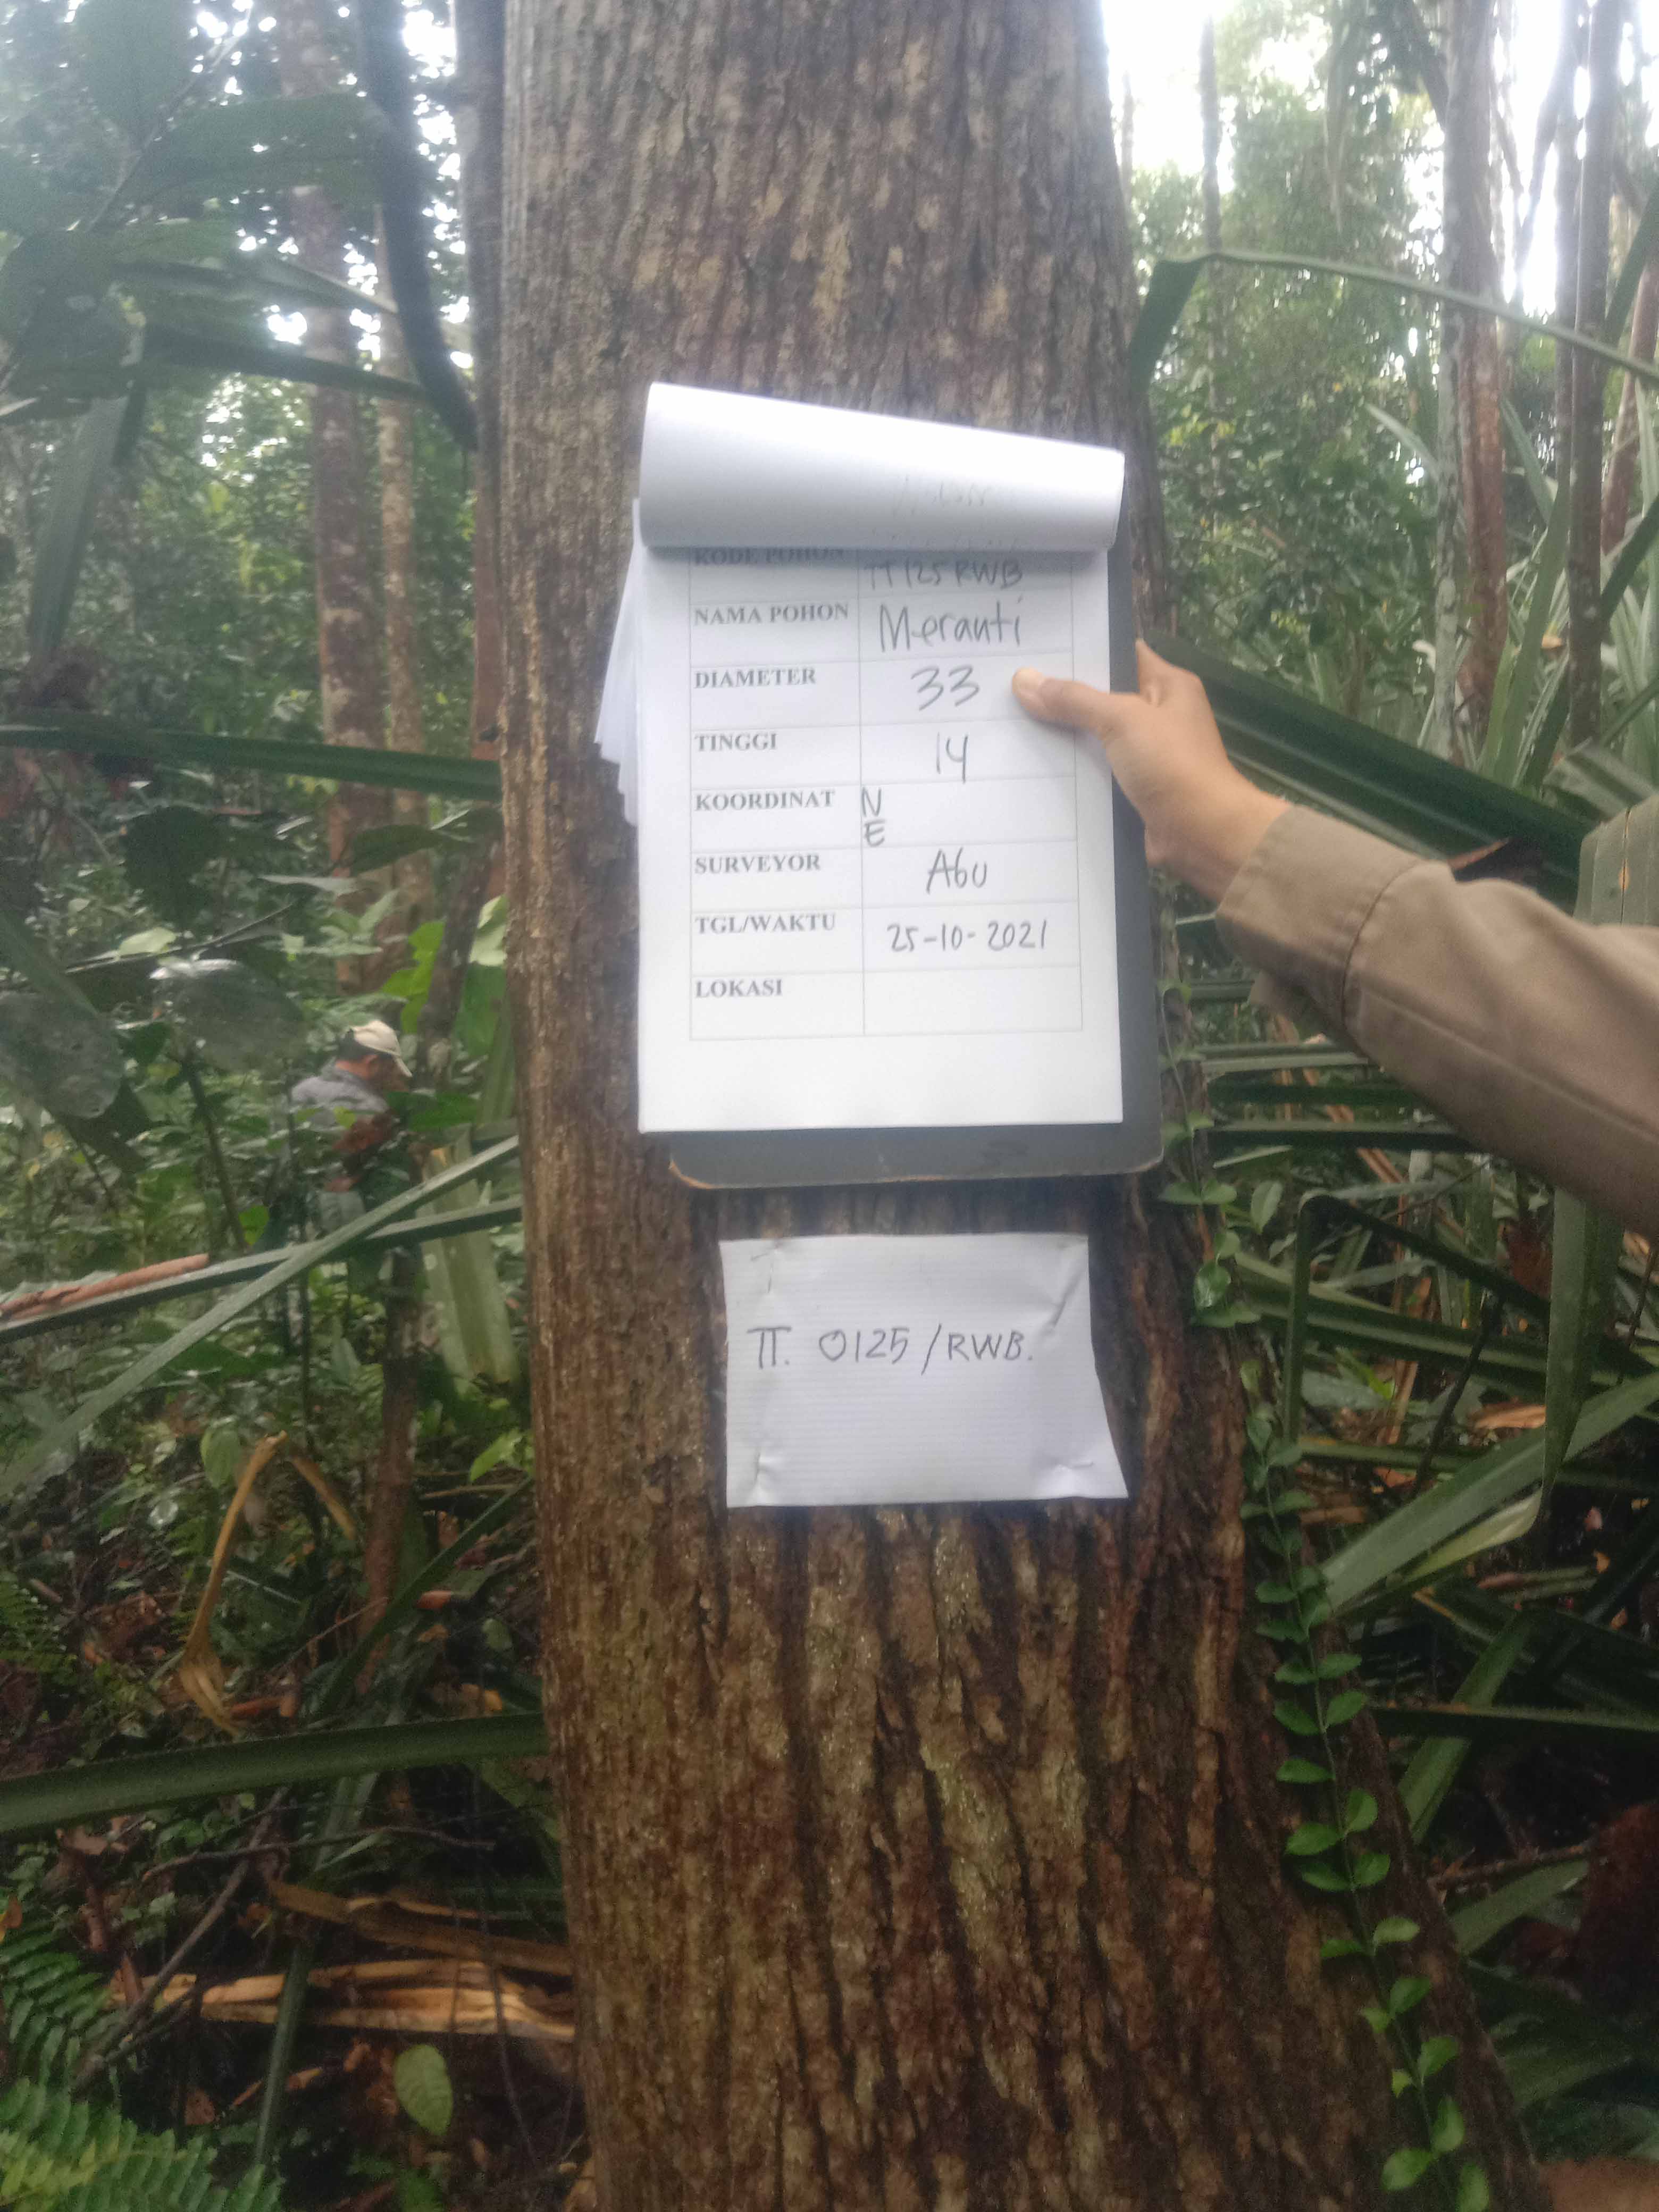 KODE POHON TT 125 RWB
NAMA POHON Meranti
DIAMETER 33
TINGGI 14
KOORDINAT N
E
SURVEYOR Abu
TGL/WAKTU 25-10-2021
LOKASI
TT. 0125/RWB.